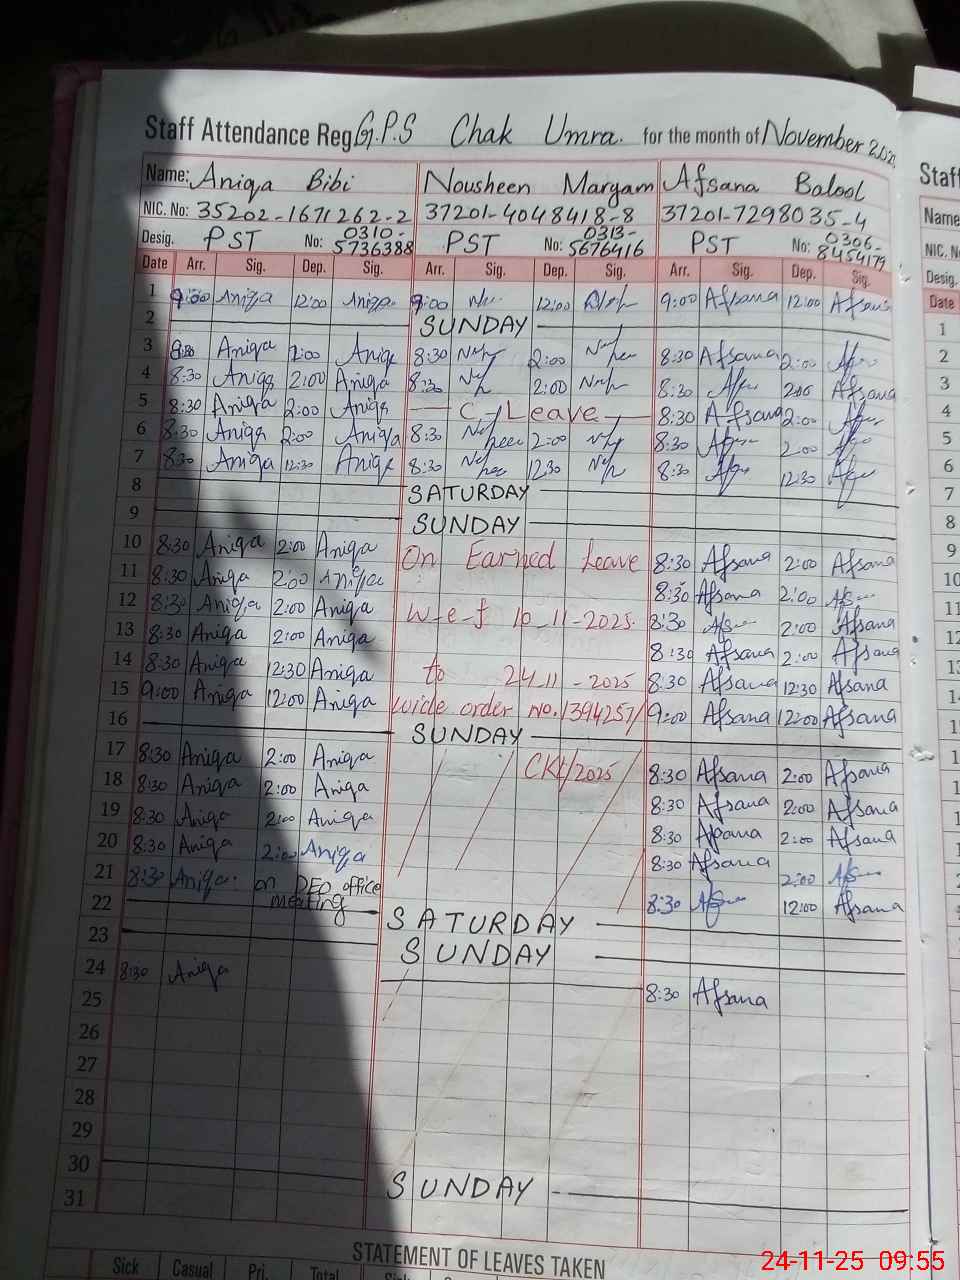 Staff Attendance Reg G.P.S Chak Umra. for the month of November
Name: Aniqa Bibi Nousheen Maryam Afsana Batool
NIC. No: 35202-1671262-2 37201-4048418-8 37201-7298035-4
Desig. PST No: 0310-5736388 PST No: 0313-5676416 PST No: 0306-8454179
Date Arr. Sig. Dep. Sig. Arr. Sig. Dep. Sig. Arr. Sig. Dep. Sig.
1 9:00 Aniqa 12:00 Aniqa 9:00 12:00 9:00 Afsana 12:00
2 SUNDAY
3 8:30 Aniqa 2:00 Aniqa 8:30 2:00 8:30 Afsana 2:00
4 8:30 Aniqa 2:00 Aniqa 8:30 2:00 8:30 2:00 Afsana
5 8:30 Aniqa 2:00 Aniqa C-Leave 8:30 Afsana 2:00
6 8:30 Aniqa 2:00 Aniqa 8:30 2:00 8:30 2:00
7 8:30 Aniqa 12:30 Aniqa 8:30 12:30 8:30 12:30
8 SATURDAY
9 SUNDAY
10 8:30 Aniqa 2:00 Aniqa On Earned Leave 8:30 Afsana 2:00 Afsana
11 8:30 Aniqa 2:00 Aniqa 8:30 Afsana 2:00
12 8:30 Aniqa 2:00 Aniqa w-e-f 10-11-2025. 8:30 2:00 Afsana
13 8:30 Aniqa 2:00 Aniqa 8:30 Afsana 2:00 Afsana
14 8:30 Aniqa 12:30 Aniqa to 24-11-2025 8:30 Afsana 12:30 Afsana
15 9:00 Aniqa 12:00 Aniqa wide order no. 1394257/ 9:00 Afsana 12:00 Afsana
16 SUNDAY
17 8:30 Aniqa 2:00 Aniqa CKL/2025 8:30 Afsana 2:00 Afsana
18 8:30 Aniqa 2:00 Aniqa 8:30 Afsana 2:00 Afsana
19 8:30 Aniqa 2:00 Aniqa 8:30 Afsana 2:00 Afsana
20 8:30 Aniqa 2:00 Aniqa 8:30 Afsana 2:00
21 8:30 Aniqa. on DEO office meeting 8:30 12:00 Afsana
22 SATURDAY
23 SUNDAY
24 8:30 Aniqa 8:30 Afsana
25
26
27
28
29
30 SUNDAY
31
STATEMENT OF LEAVES TAKEN
Sick Casual Pri. Total Sick
24-11-25 09:55
Staff
Name
NIC. No
Desig.
Date
1
2
3
4
5
6
7
8
9
10
11
12
13
14
15